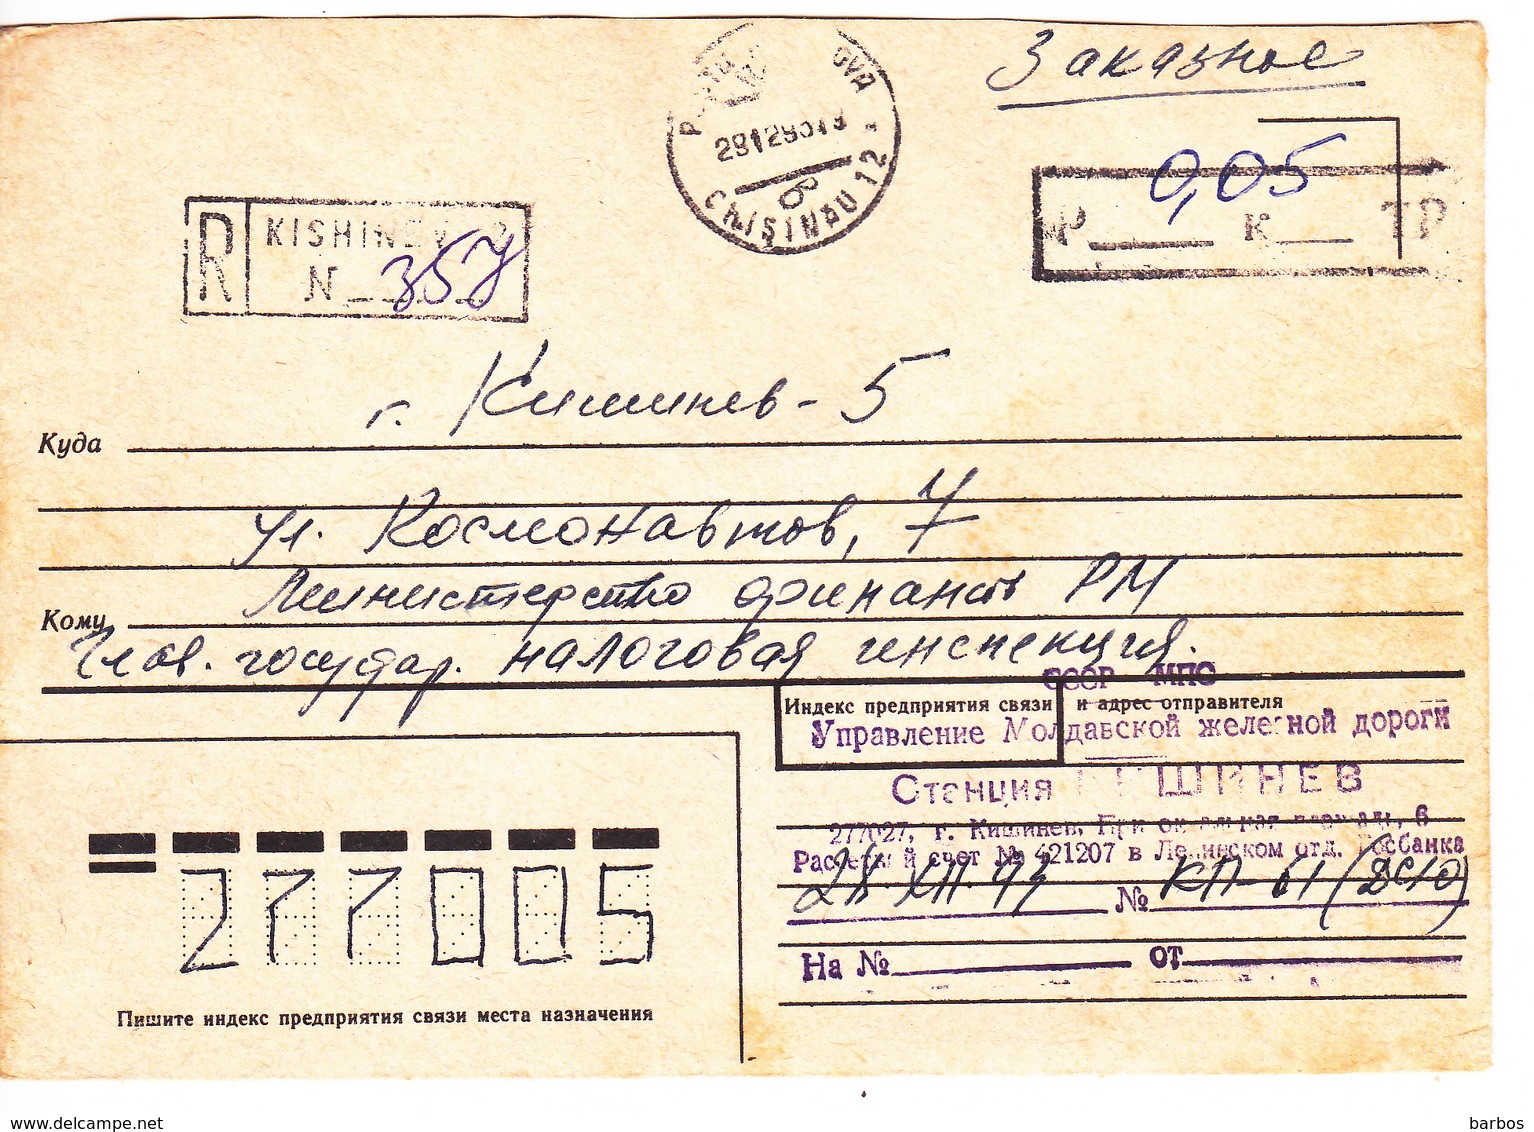 Заказное
OVA
CHIŞINĂU 12
в
R KISHINEV
N 357
0,05
Р К ТР
г. Кишинев - 5
Куда
ул. Космонавтов, 7
Министерство финансов РМ
Кому
Глав. государ. налоговая инспекция.
СССР МПС
Индекс предприятия связи и адрес отправителя
Управление Молдавской железной дороги
Станция КИШИНЕВ
г. Кишинев,
Расчетный счет № 421207 в Ленинском отд. Госбанка
28.XII.93 № КП-61 (ДСЮ)
На № от
277005
Пишите индекс предприятия связи места назначения
www.delcampe.net
barbos